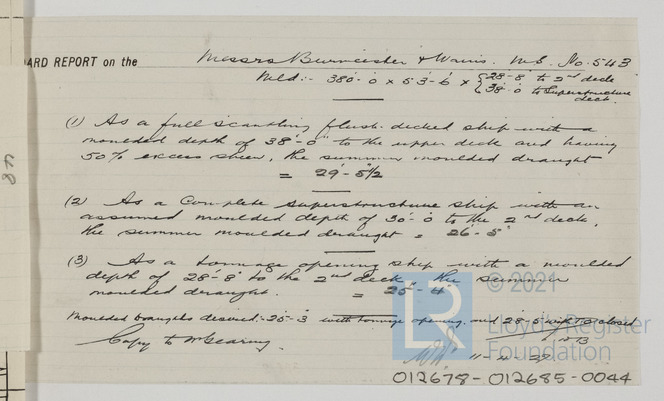 ARD REPORT on the
Messrs Burmeister & Wains. M.S. No. 543
Mld:- 380'-0 x 53'-6 x { 28'-8 to 2nd deck
38'-0 to Superstructure
deck.
(1) As a full scantling flush-decked ship with a
moulded depth of 38'-0" to the upper deck and having
50% excess sheer, the summer moulded draught
= 29'-5½
(2) As a Complete superstructure ship with an
assumed moulded depth of 30'-0 to the 2nd deck,
the summer moulded draught = 26'-5"
(3) As a tonnage opening ship with a moulded
depth of 28'-8" to the 2nd deck the summer
moulded draught. = 25'-4"
Moulded draughts desired:- 25'-3 with tonnage opening and 28'-5 with T.O. closed
Copy to Mr Gearing.
11-11-27
48
© 2021
Lloyd's Register
Foundation
012678-012685-0044